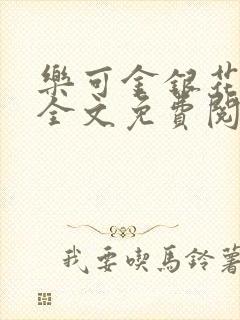 樂可金銀花
全文免費閱
我要喫馬鈴薯